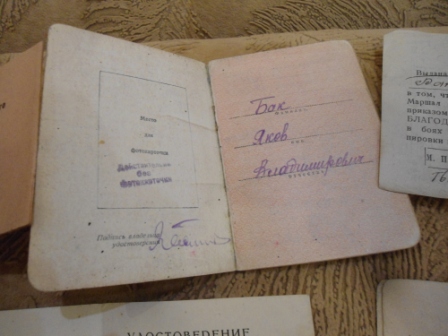 Место
для
фотокарточки
Действительно
без
фотокарточки
Подпись владельца
удостоверения
Бак
Яков
Владимирович
Выдана
в том, чт
Маршал
приказом
БЛАГОД
в боях
пировки
УДОСТОВЕРЕНИЕ